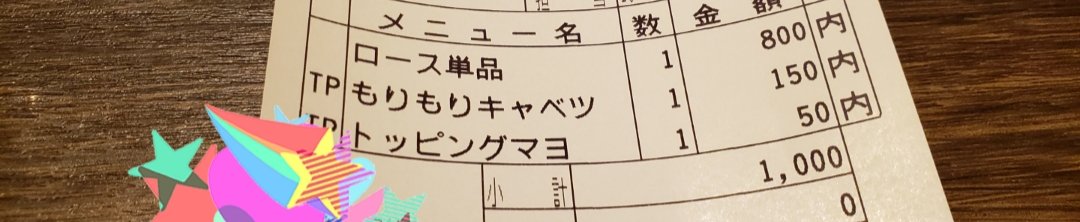 メニュー名 数 金額
ロース単品 1 800 内
TP もりもりキャベツ 1 150 内
TP トッピングマヨ 1 50 内
小計 1,000
0